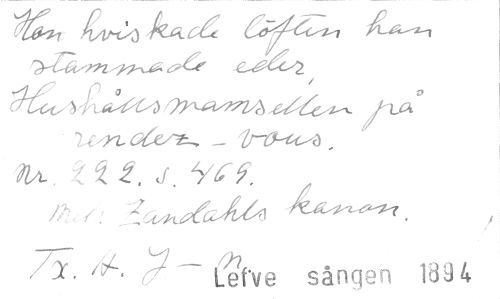 Hon hviskade löften han
stammade eder,
Hushållsmamsellen på
rendez-vous.
Nr. 222. s. 469.
Mel: Zandahls kanon.
Tx. A. J-n.
Lefve sången 1894